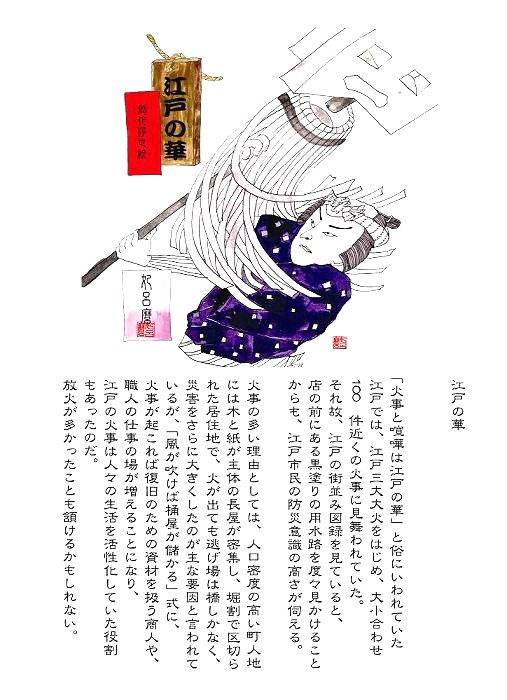 江戸の華
悦仏浮世絵
妃呂麿
江戸の華
「火事と喧嘩は江戸の華」と俗にいわれていた
江戸では、江戸三大大火をはじめ、大小合わせ
100件近くの火事に見舞われていた。
それ故、江戸の街並み図録を見ていると、
店の前にある黒塗りの用水路を度々見かけること
からも、江戸市民の防災意識の高さが伺える。
火事の多い理由としては、人口密度の高い町人地
には木と紙が主体の長屋が密集し、堀割で区切ら
れた居住地で、火が出ても逃げ場は橋しかなく、
災害をさらに大きくしたのが主な要因と言われて
いるが、「風が吹けば桶屋が儲かる」式に、
火事が起これば復旧のための資材を扱う商人や、
職人の仕事の場が増えることになり、
江戸の火事は人々の生活を活性化していた役割
もあったのだ。
放火が多かったことも頷けるかもしれない。